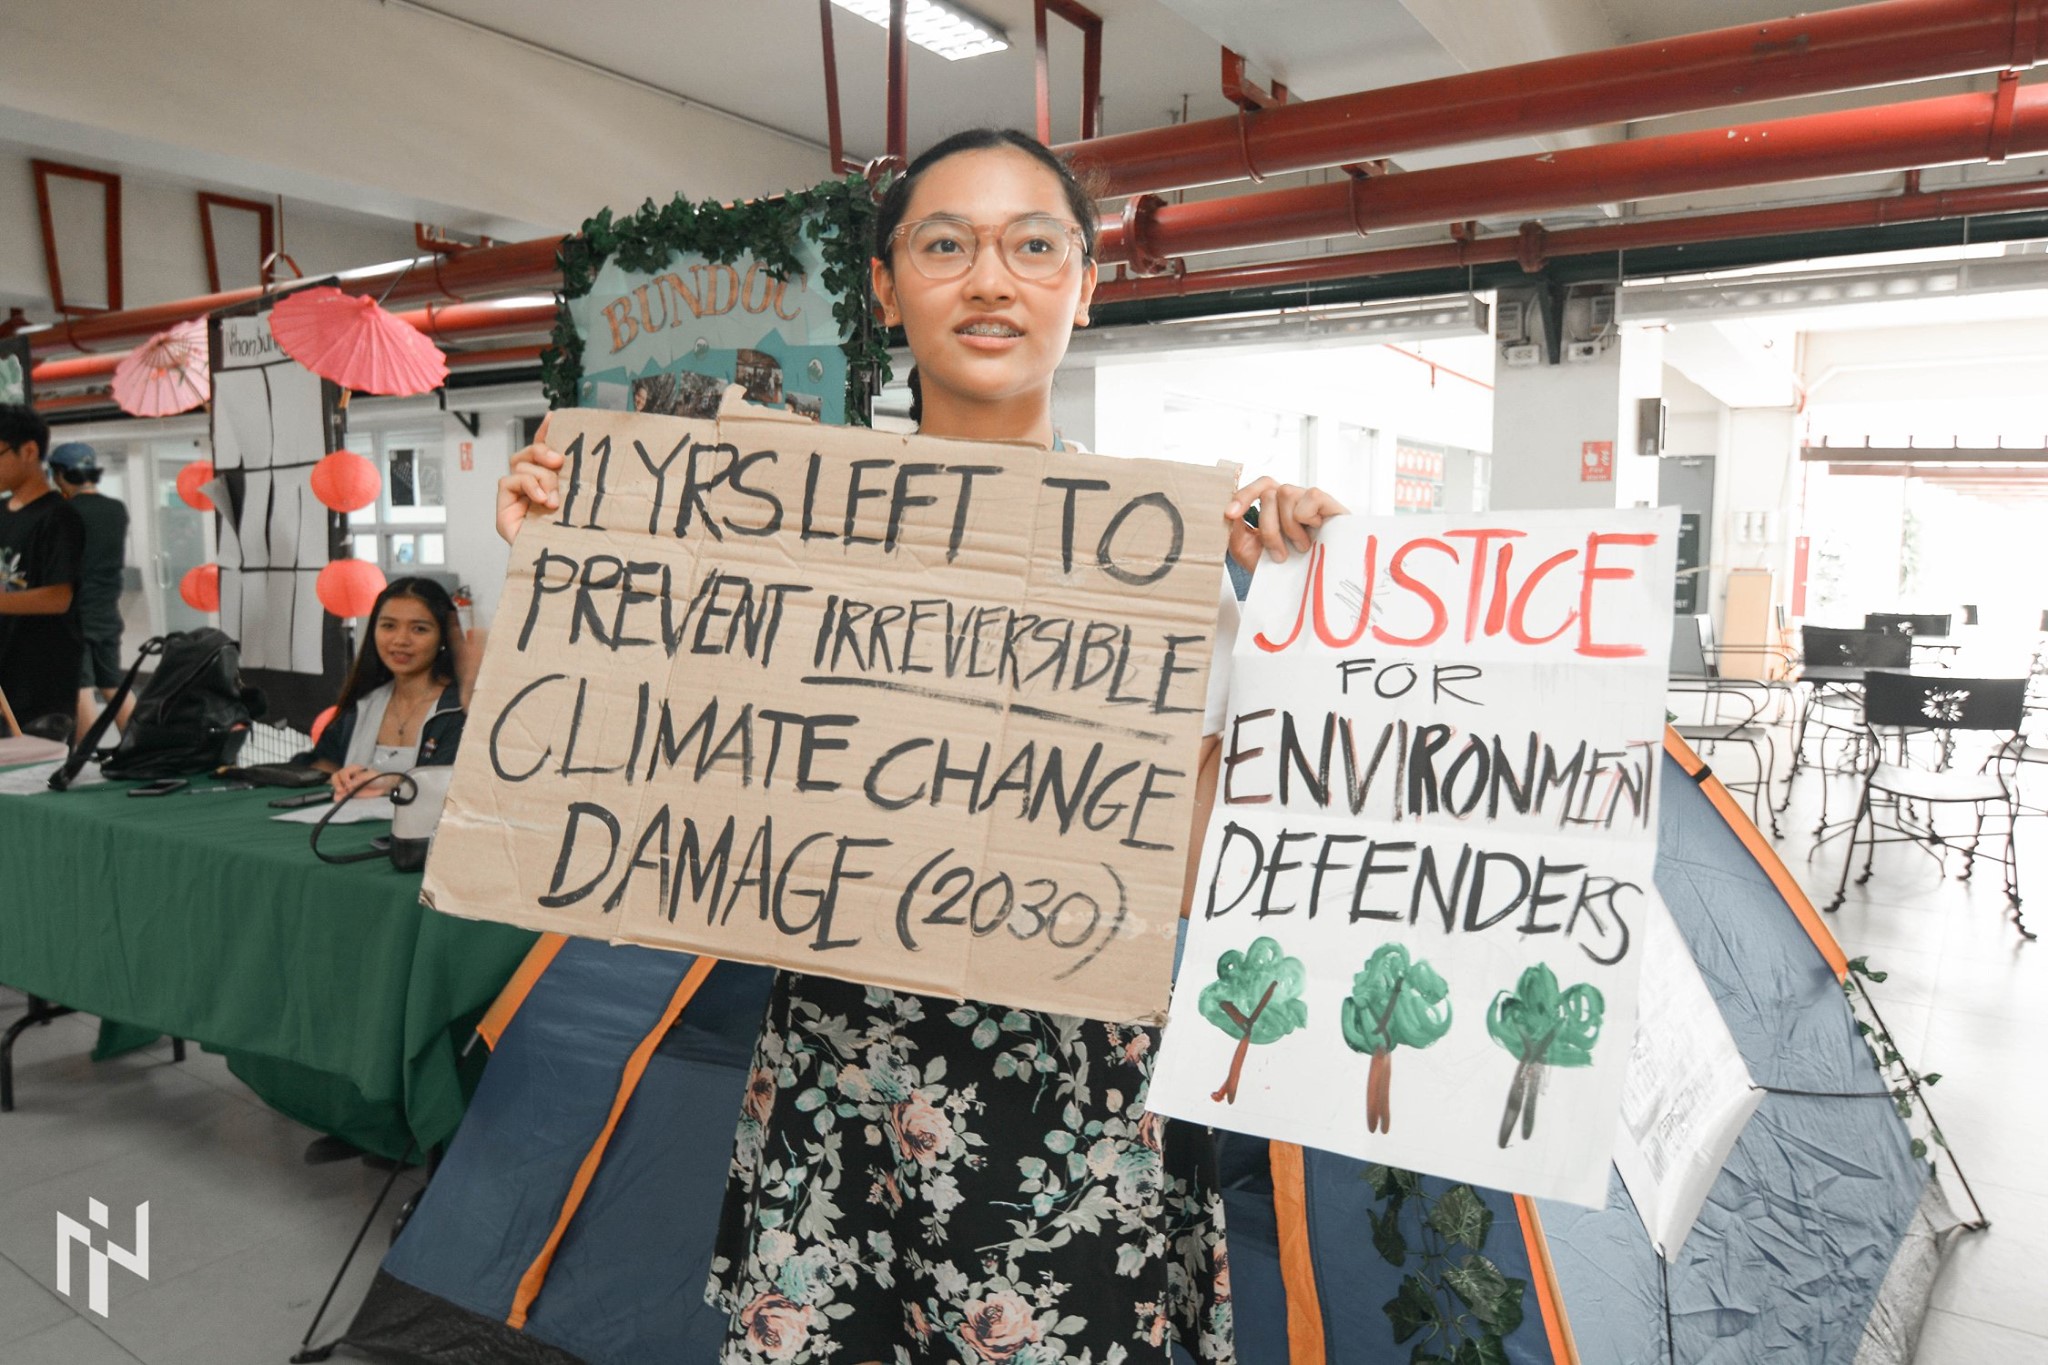 BUNDOC
11 YRS LEFT TO
PREVENT IRREVERSIBLE
CLIMATE CHANGE
DAMAGE (2030)
JUSTICE
FOR
ENVIRONMENT
DEFENDERS